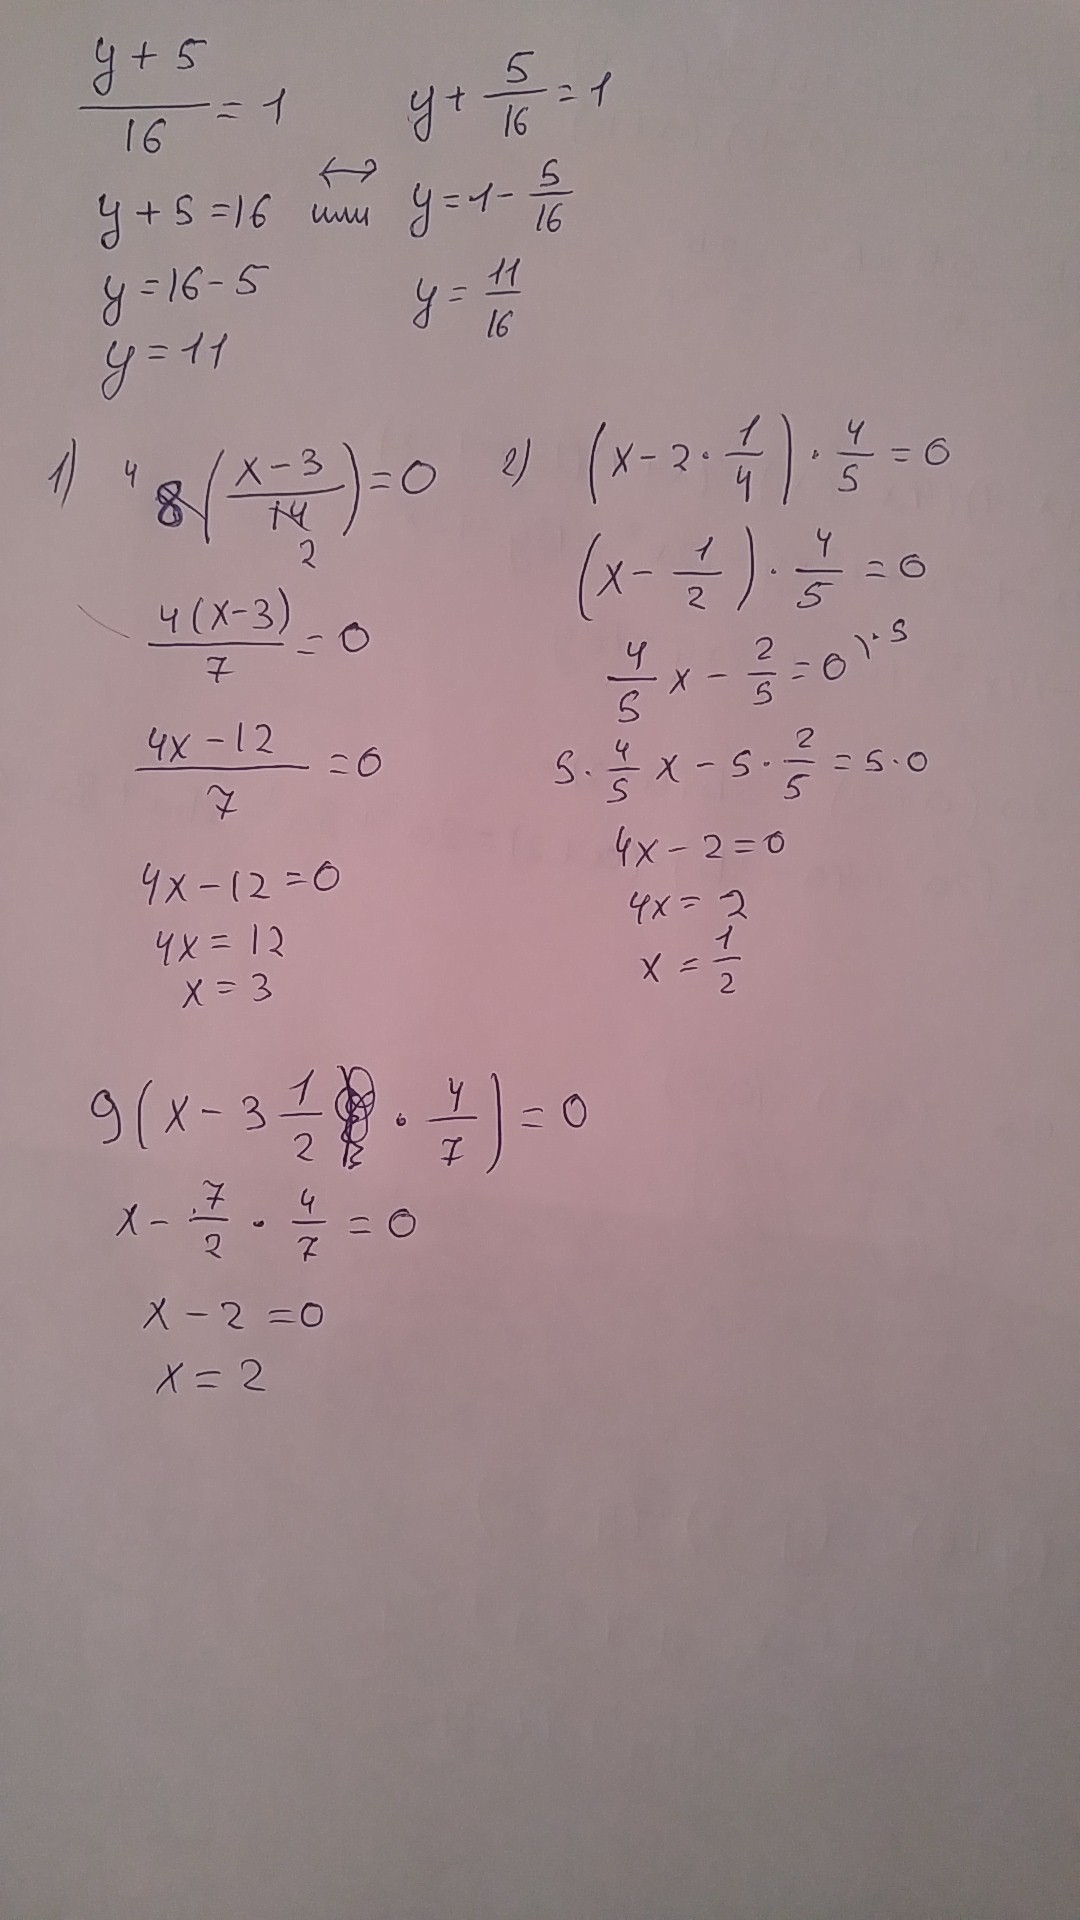 (y + 5)/16 = 1
y + 5 = 16
y = 16 - 5
y = 11
↔
или
y + 5/16 = 1
y = 1 - 5/16
y = 11/16
1) 4 8((x - 3)/14) = 0
2
4(x-3)/7 = 0
(4x - 12)/7 = 0
4x - 12 = 0
4x = 12
x = 3
2) (x - 2 · 1/4) · 4/5 = 0
(x - 1/2) · 4/5 = 0
4/5 x - 2/5 = 0 ) · 5
5 · 4/5 x - 5 · 2/5 = 5 · 0
4x - 2 = 0
4x = 2
x = 1/2
9(x - 3 1/2 · 4/7) = 0
x - 7/2 · 4/7 = 0
x - 2 = 0
x = 2